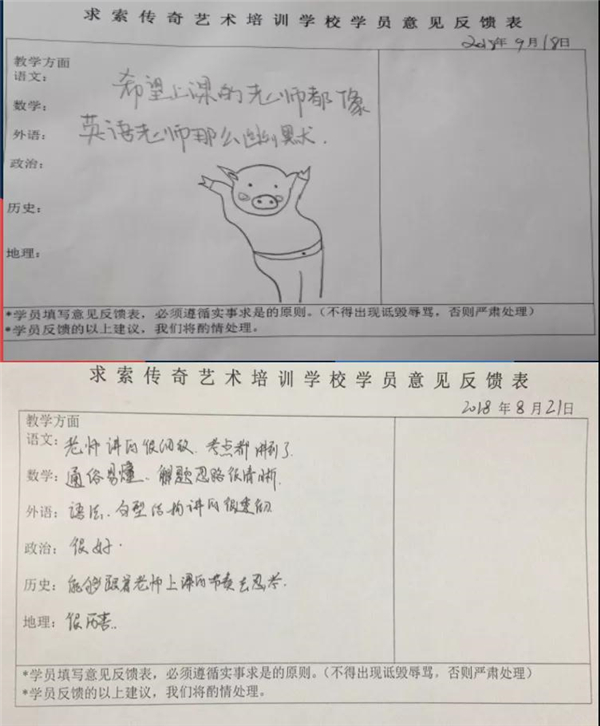 求索传奇艺术培训学校学员意见反馈表
2018年9月18日
教学方面
语文：
希望上课的老师都像
数学：
英语老师那么幽默.
外语：
政治：
历史：
地理：
*学员填写意见反馈表，必须遵循实事求是的原则。（不得出现诋毁辱骂，否则严肃处理）
*学员反馈的以上建议，我们将酌情处理。
求索传奇艺术培训学校学员意见反馈表
2018年8月21日
教学方面
语文：老师讲的很细致.考点都讲到了.
数学：通俗易懂、解题思路很清晰.
外语：语法、句型结构讲的很透彻
政治：很好.
历史：能够跟着老师上课的节奏去思考.
地理：很厉害.
*学员填写意见反馈表，必须遵循实事求是的原则。（不得出现诋毁辱骂，否则严肃处理）
*学员反馈的以上建议，我们将酌情处理。